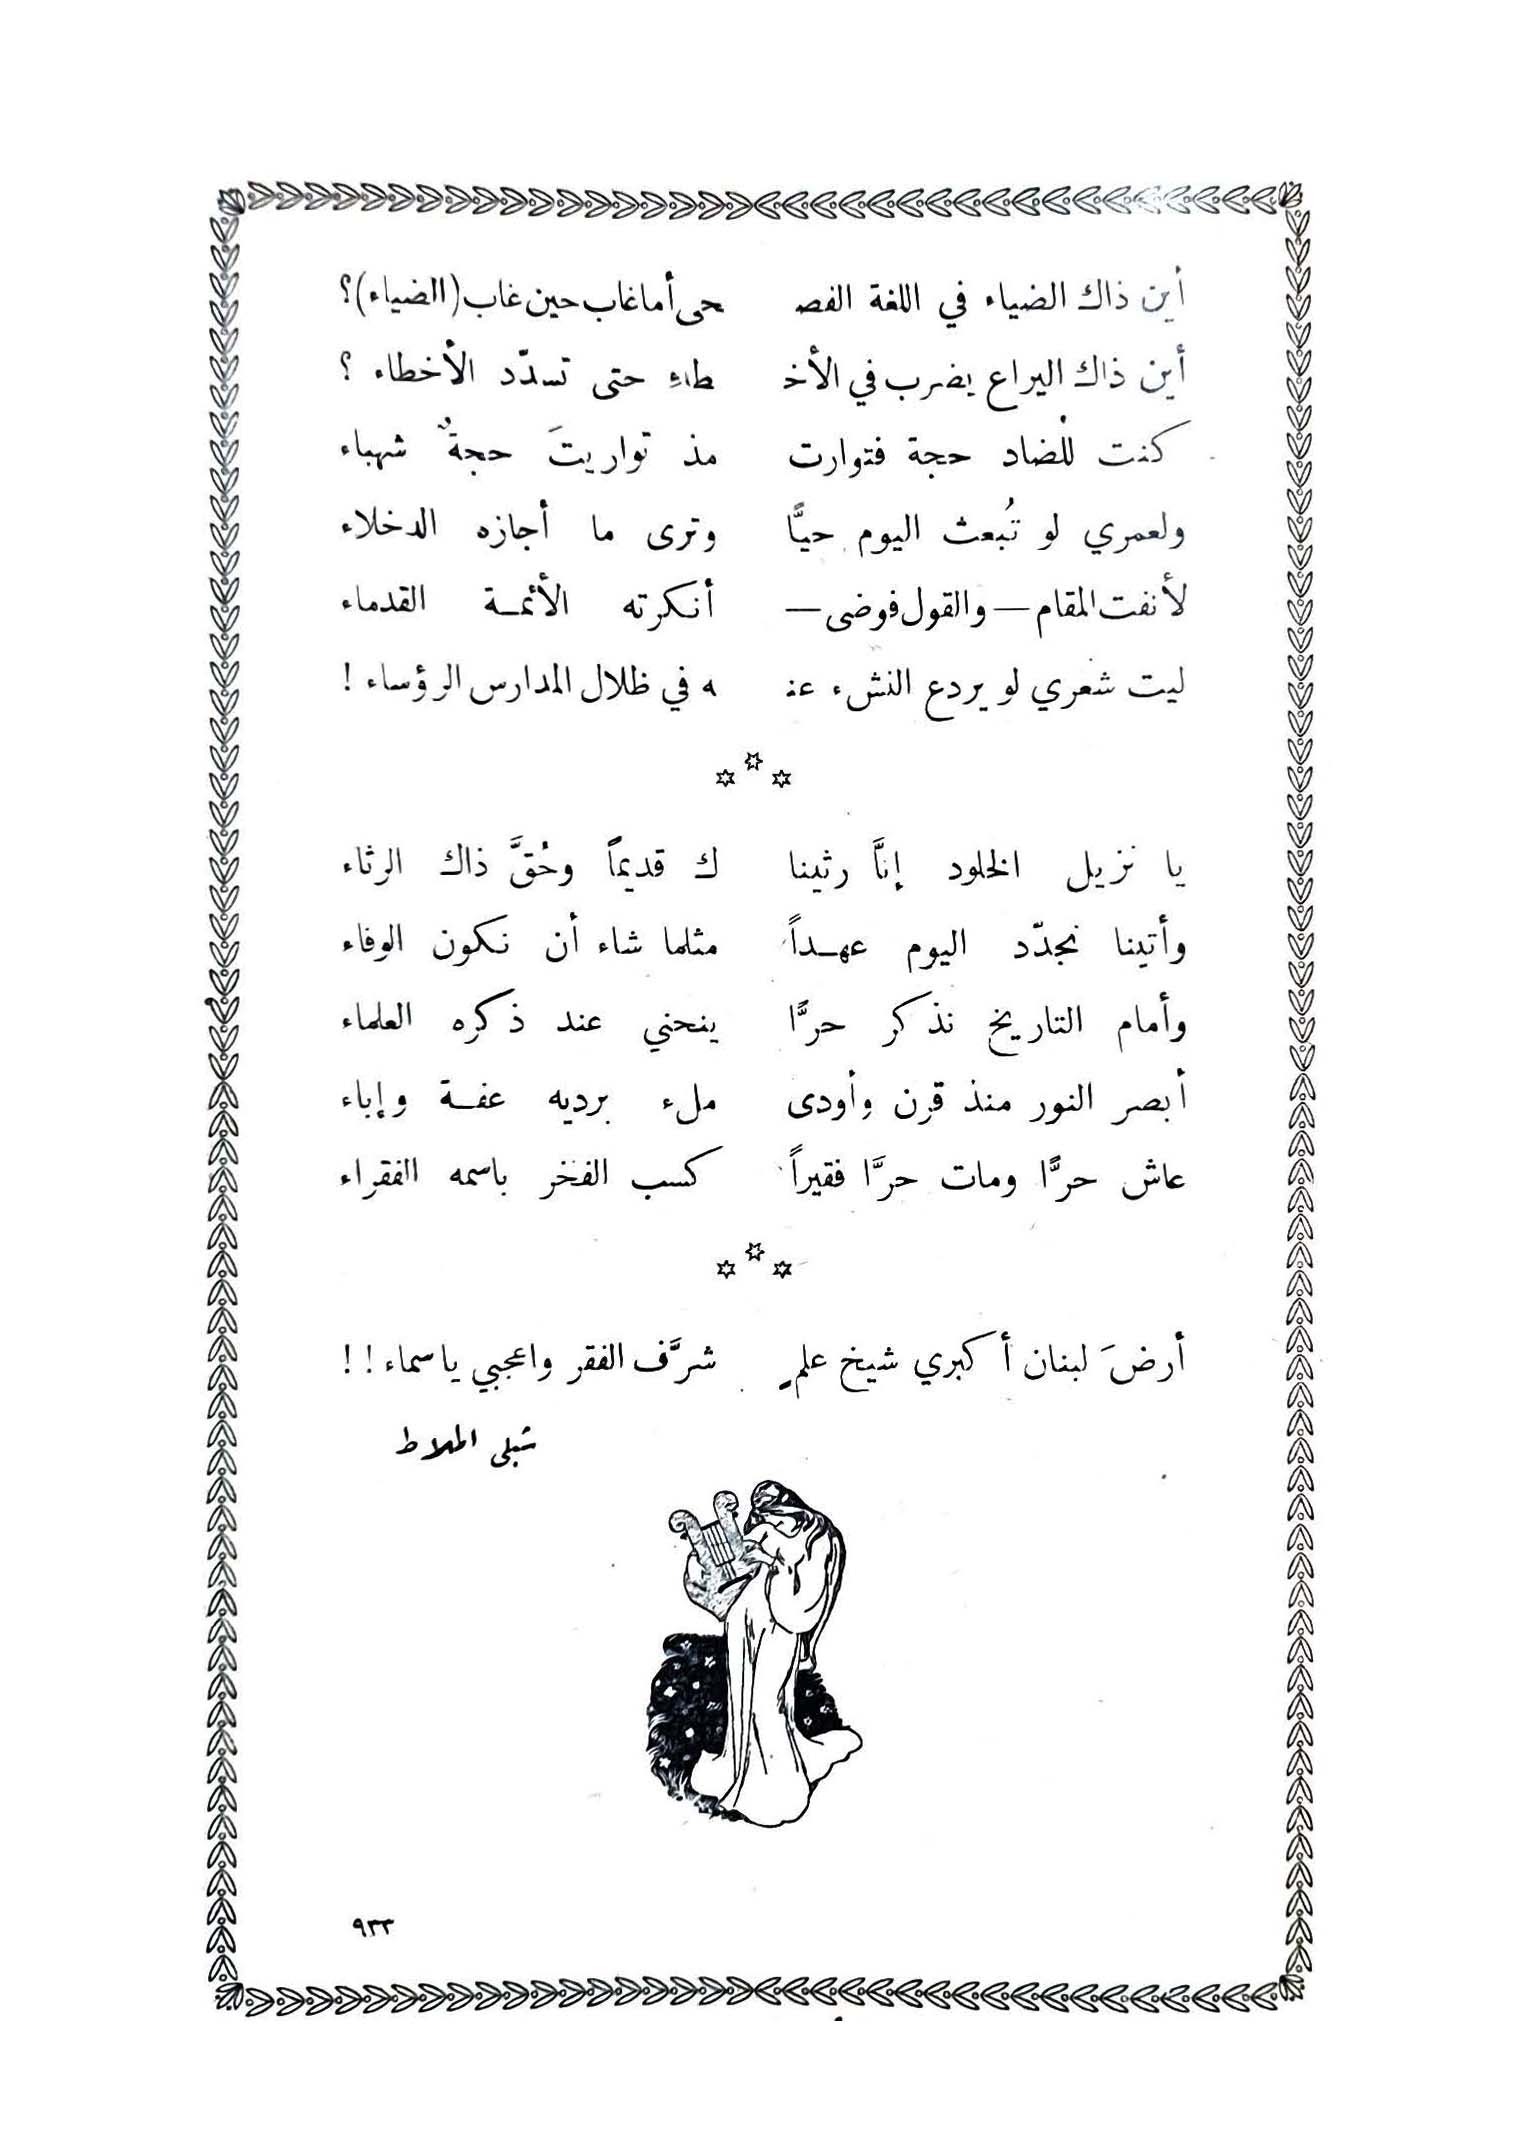 أين ذاك الضياء في اللغة الفصـ ـحى أماغاب حين غاب (الضياء)؟
أين ذاك اليراع يضرب في الأخـ ـطاء حتى تسدّد الأخطاء ؟
كنت للضاد حجة فتوارت مذ تواريتَ حجةٌ شهباء
ولعمري لو تُبعث اليوم حيًّا وترى ما أجازه الدخلاء
لأنفت المقام — والقول فوضى — أنكرته الأئمـة القدماء
ليت شعري لو يردع النشء عنـ ـه في ظلال المدارس الرؤساء !
يا نزيل الخلود إنَّا رثينا ك قديماً وحُقَّ ذاك الرثاء
وأتينا نجدّد اليوم عهـداً مثلما شاء أن نكون الوفاء
وأمام التاريخ نذكر حرًّا ينحني عند ذكره العلماء
أبصر النور منذ قرن وأودى ملء برديه عفـة وإباء
عاش حرًّا ومات حرًّا فقيراً كسب الفخر باسمه الفقراء
أرضَ لبنان أكبري شيخ علمٍ شرَّف الفقر واعجبي ياسماء ! !
شبلي الملاط
٩٣٣